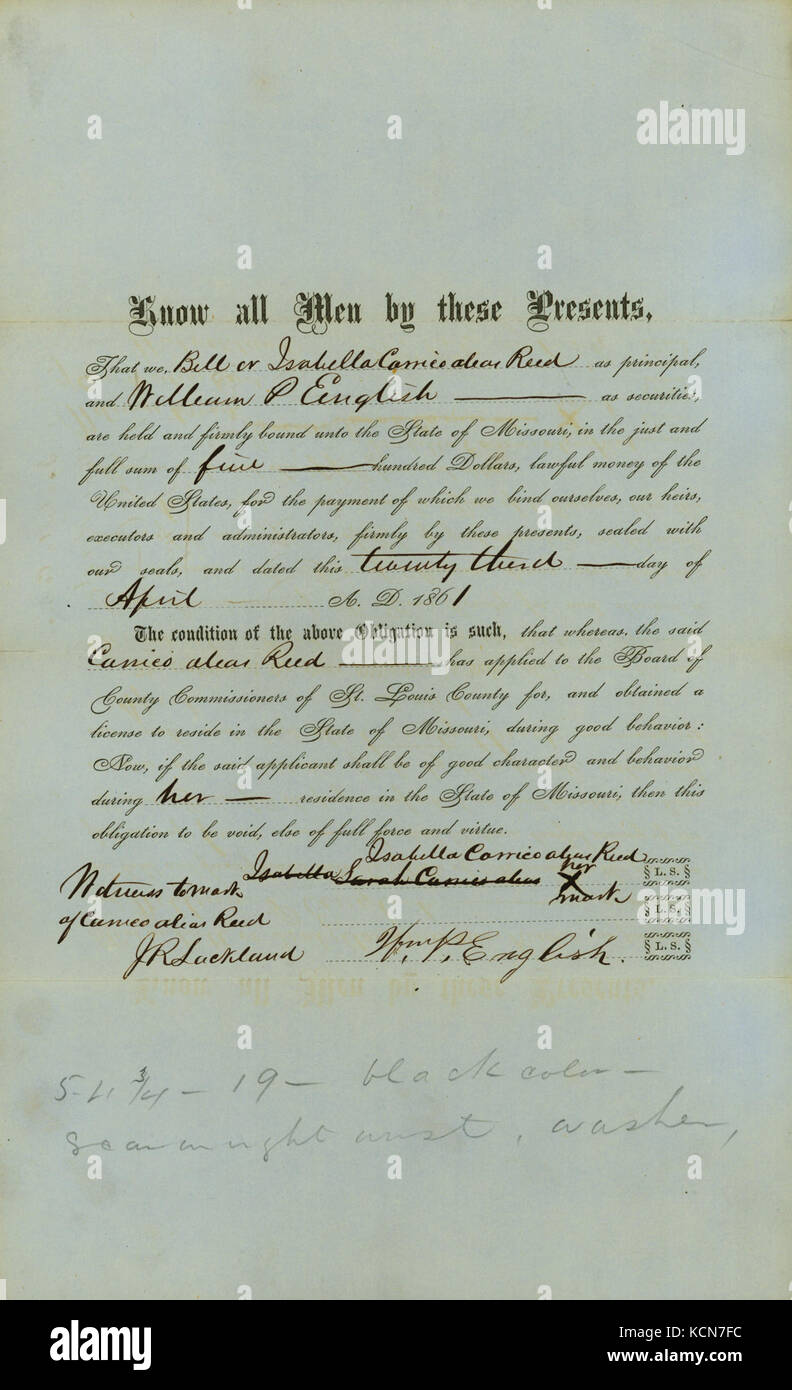 Know all Men by these Presents,
That we, Bell or Isabella Carrico alias Reed as principal,
and William P English as securities,
are held and firmly bound unto the State of Missouri, in the just and
full sum of five hundred Dollars, lawful money of the
United States, for the payment of which we bind ourselves, our heirs,
executors and administrators, firmly by these presents, sealed with
our seals, and dated this twenty third day of
April A. D. 1861
The condition of the above Obligation is such, that whereas, the said
Carrico alias Reed has applied to the Board of
County Commissioners of St. Louis County for, and obtained a
license to reside in the State of Missouri, during good behavior:
Now, if the said applicant shall be of good character and behavior
during her residence in the State of Missouri, then this
obligation to be void, else of full force and virtue.
Isabella Carrico alias Reed
Isabella Sarah Carrico alias X her mark L. S.
Witness to mark
of Carrico alias Reed L. S.
J R Lackland Wm. P. English. L. S.
5-4 3/4 - 19 - black color -
scar on right wrist, washer,
alamy
a
alamy
Image ID: KCN7FC
www.alamy.com